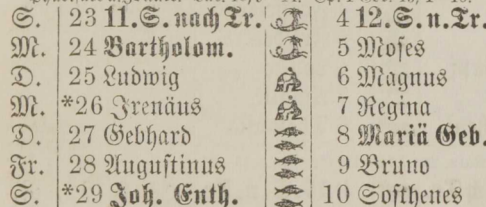 S. 23 11. S. nach Tr. 4 12. S. n. Tr.
M. 24 Bartholom. 5 Moses
D. 25 Ludwig 6 Magnus
M. *26 Irenäus 7 Regina
D. 27 Gebhard 8 Mariä Geb.
Fr. 28 Augustinus 9 Bruno
S. *29 Joh. Enth. 10 Sosthenes